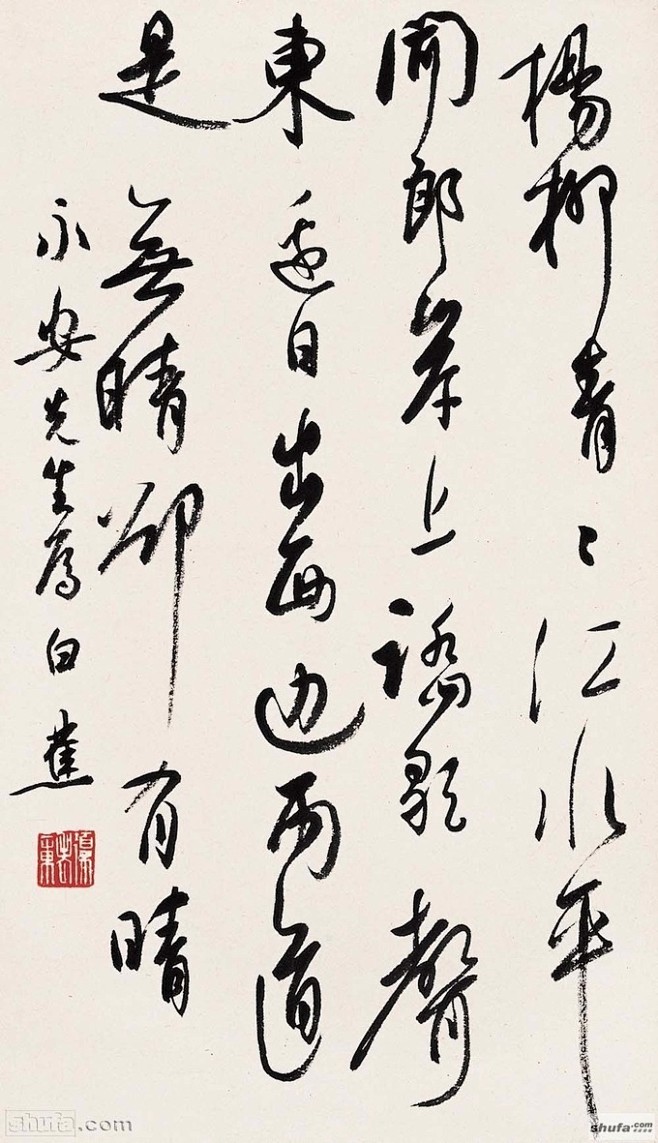 楊柳青〻江水平
聞郎岸上踏歌聲
東邊日出西边雨道
是無晴卻有晴
永安先生属白蕉
shufa.com
shufa.com